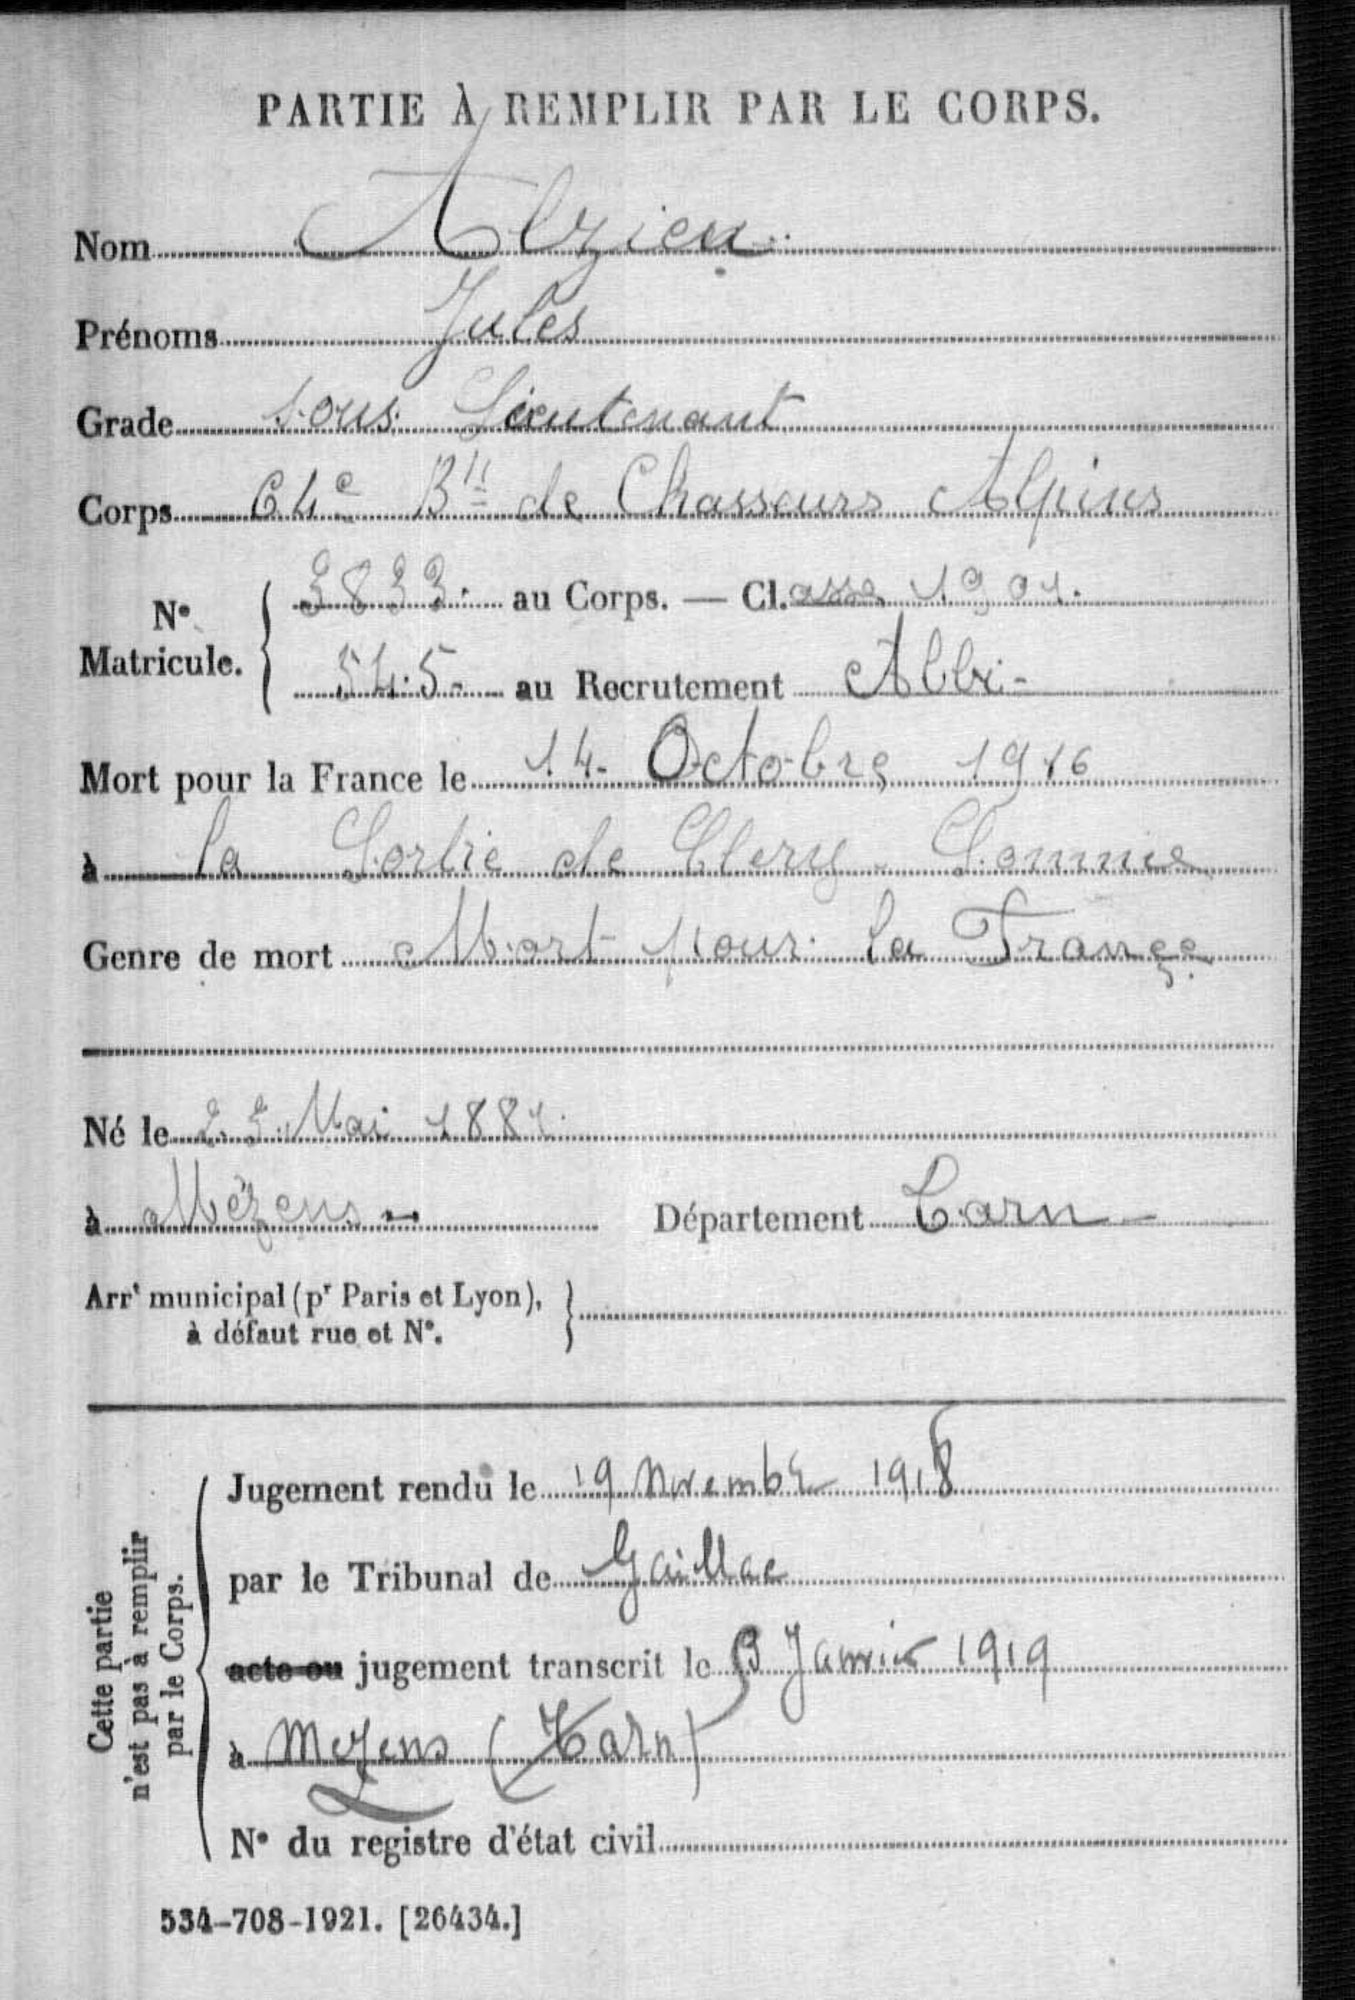 PARTIE À REMPLIR PAR LE CORPS.
Nom Alzieu
Prénoms Jules
Grade Sous Lieutenant
Corps 64e Bn de Chasseurs Alpins
No Matricule. 3833 au Corps. — Cl.asse 1901.
545 au Recrutement Albi
Mort pour la France le 14 Octobre 1916
à la Sortie de Clery Somme
Genre de mort Mort pour la France
Né le 23 Mai 1881
à Mézens Département Tarn
Arrt municipal (pr Paris et Lyon),
à défaut rue et No.
Cette partie
n'est pas à remplir
par le Corps.
Jugement rendu le 19 Novembre 1918
par le Tribunal de Gaillac
acte ou jugement transcrit le 3 Janvier 1919
à Mezens (Tarn)
No du registre d'état civil
534-708-1921. [26434.]